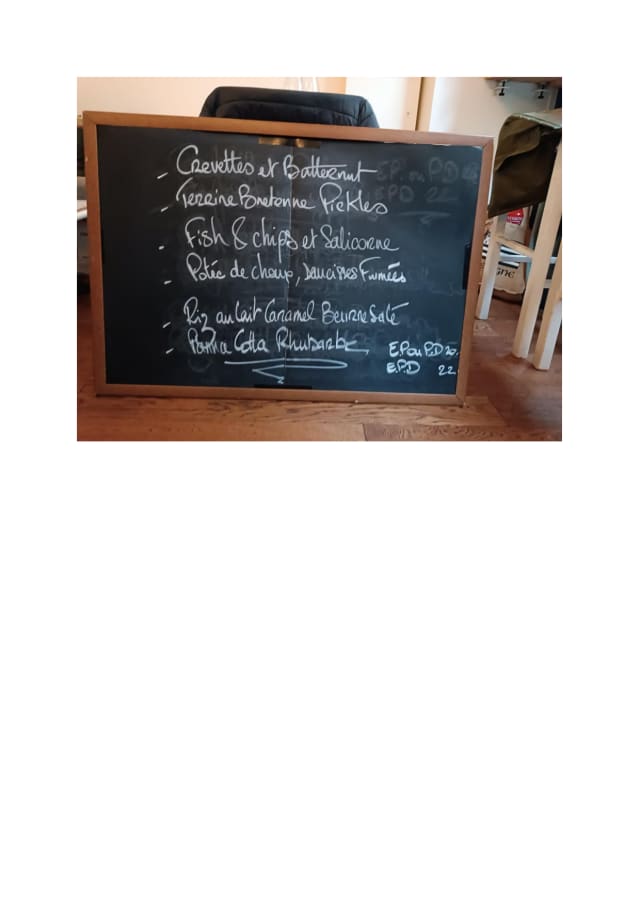 - Crevettes et Butternut
- Terrine Bretonne Pickles
- Fish & chips et Salicorne
- Potée de choux, saucisses Fumées
- Riz au lait Caramel Beurre Salé
- Panna Cotta Rhubarbe
E.P ou P.D 20.
E.P.D 22.